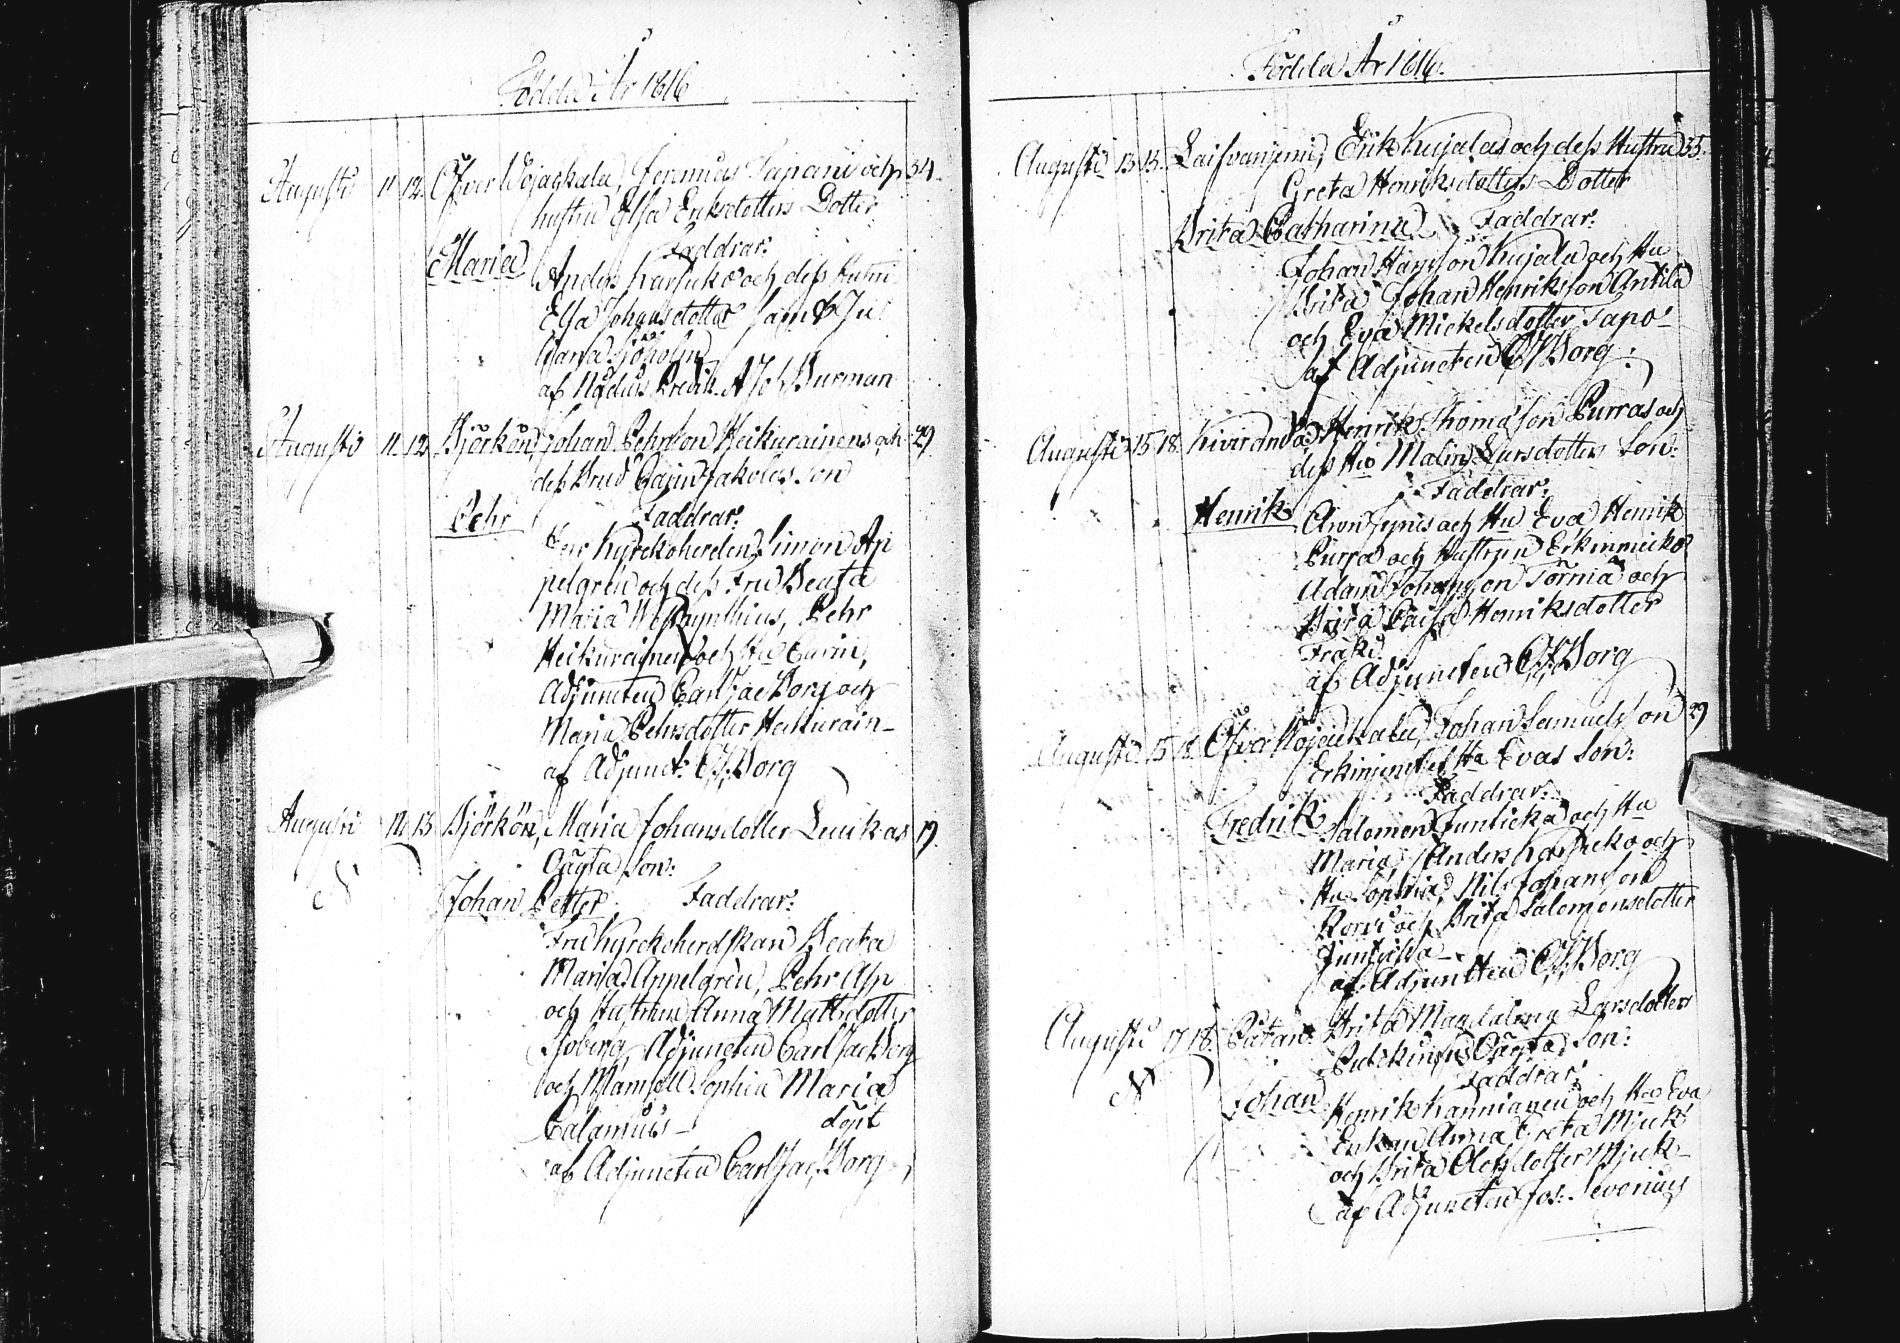 Födde År 1816
Augusti 11 12 Öfver Wojackala, Jeremias Tapani och 34
hustru Elsa Eriksdotters Dotter
Faddrar:
Maria
Anders Karjuko och dess hustru
Elsa Johansdotter samt
Sjöholm
af Nådårs Predik. A Joh Burman
Augusti 11 12 Björkön, Johan Pehrsson Heikurainens och 29
dess Brud Cajin Jakobs Son
Pehr Faddrar:
Herr Kyrckoherden Simon Ap
pelgren och dess Fru Beata
Maria Westzynthius, Pehr
Heikurainen och Hu Carin,
Adjuncten Carl Jac Borg och
Maria Pehrsdotter Heikurain-
af Adjunct: CJ Borg
Augusti 12 13 Björkön, Maria Johansdotter Luukas 19
Oägta Son:
Johan Petter Faddrar:
Fru Kyrckoherdskan Beata
Maria Appelgren, Pehr Asp
och Hustrun Anna Mattsdotter
Sjöberg, Adjuncten Carl Jac Borg
och Mamsell Sophia Maria
Calamnius- döpt
af Adjuncten Carl Jac Borg
Födde År 1816.
Augusti 13 15 Laifvaniemi, Erik Kujalas och dess Hustru 35
Greta Henriksdotters Dotter
Brita Catharina Faddrar:
Johan Hansson Kujala och Hu
Brita Johan Henriksson Antila
och Eva Mickelsdotter Tapo-
af Adjuncten CJ Borg:
Augusti 15 18 Kiviranda Henrik Thomasson Purras och
dess Hu Malin Larsdotters Son:
Faddrar:
Henrik Aron och Hu Eva Henrik
Purra och Hustrun
Adam Johansson Törmä och
Brita Caisa Henriksdotter
af Adjuncten CJ Borg
Augusti 15 18 Öfver Wojackala, Johan Samuelsson 29
Hu Evas Son:
Faddrar:
Fredrik Salomon Junticka och Hu
Maria, Anders Karjuko och
Hu Sophia, Nils Johansson
och Brita Salomonsdotter
Junticka-
af Adjuncten CJ Borg
Augusti 17 18 Brita Magdalena Larsdotters
Oägta Son:
Faddrar:
Johan Henrik Kannianen och Hu Eva
Enkan Anna Greta Mjuk
och Brita Olofsdotter Mjuk-
af Adjuncten Jos: Severius